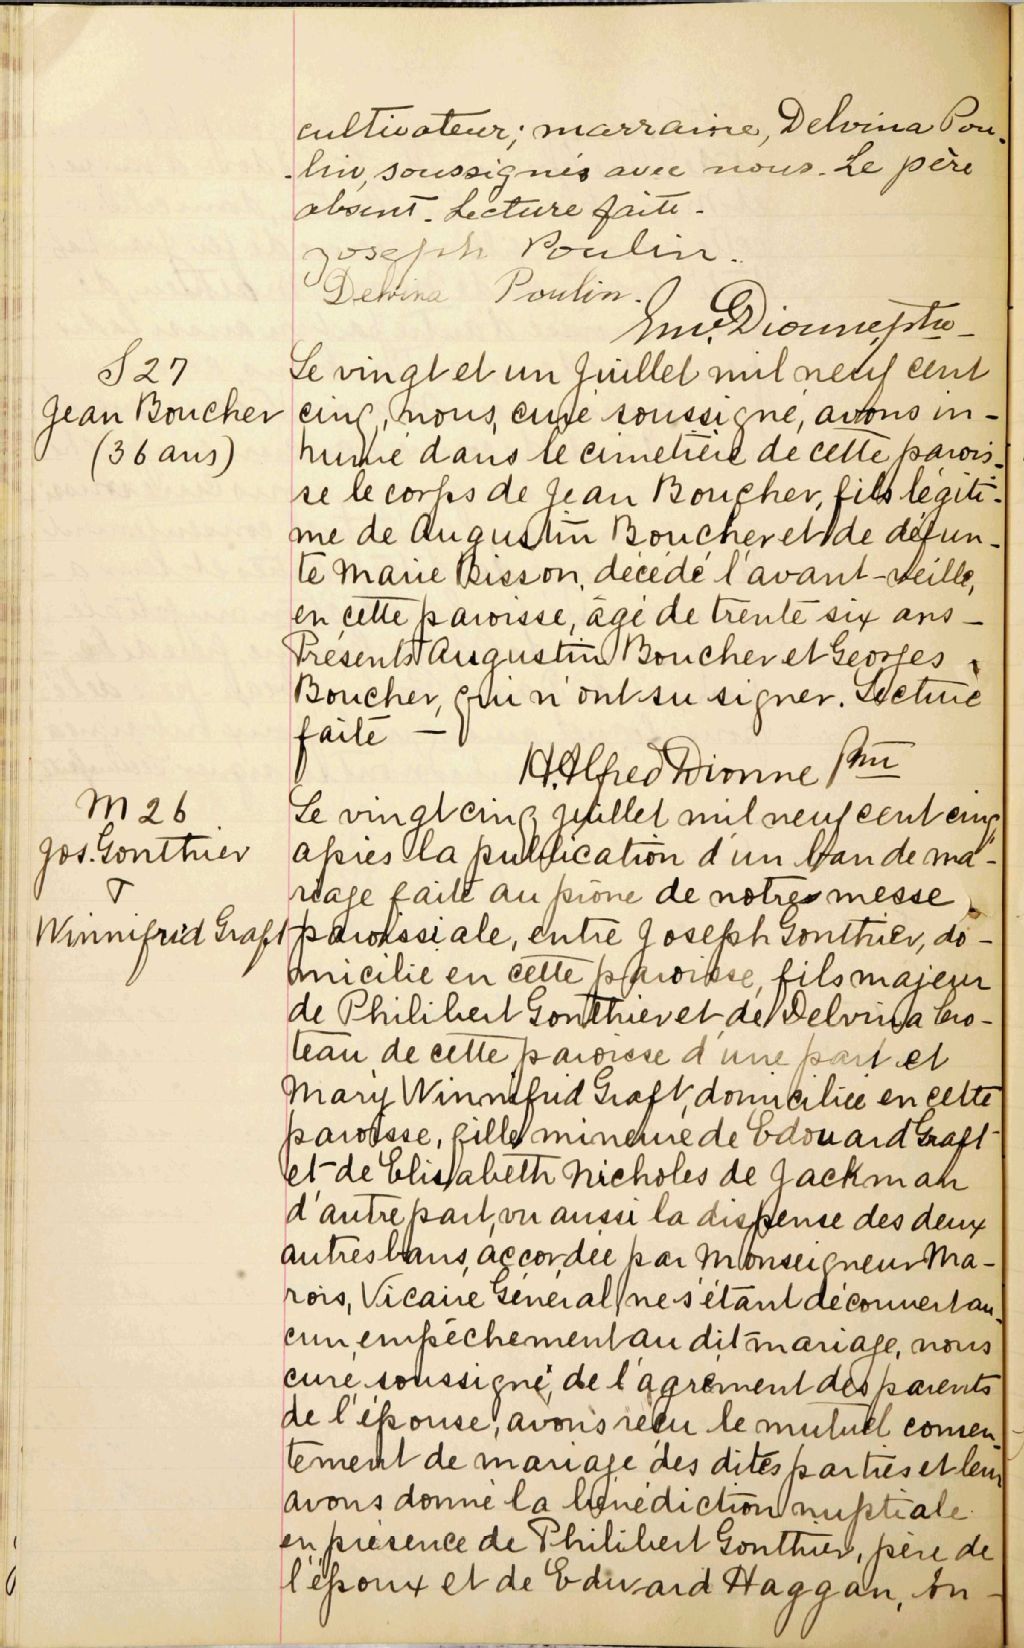 cultivateur; marraine, Delvina Pou-
-lin, soussignés avec nous. Le père
absent. Lecture faite.
Joseph Poulin.
Delvina Poulin.
Dionne, ptre
S 27
Jean Boucher
(36 ans)
Le vingt et un Juillet mil neuf cent
cinq, nous, curé soussigné, avons in-
humé dans le cimetière de cette parois-
se le corps de Jean Boucher, fils légiti-
me de Augustin Boucher et de défun-
te Marie Bisson, décédé l'avant-veille,
en cette paroisse, âgé de trente six ans -
Présents Augustin Boucher et Georges
Boucher, qui n'ont su signer. Lecture
faite —
H. Alfred Dionne Ptre
M 26
Jos. Gonthier
&
Winnifrid Graft
Le vingt cinq Juillet mil neuf cent cinq
après la publication d'un ban de ma-
riage faite au prône de notre messe
paroissiale, entre Joseph Gonthier, do-
micilié en cette paroisse, fils majeur
de Philibert Gonthier et de Delvina Cro-
teau de cette paroisse d'une part et
Mary Winnifrid Graft, domiciliée en cette
paroisse, fille mineure de Edouard Graft
et de Elisabeth Nicholes de Jackman
d'autre part, vu aussi la dispense des deux
autres bans, accordée par Monseigneur Ma-
rois, Vicaire Général, ne s'étant découvert au-
cun empêchement au dit mariage, nous
curé soussigné, de l'agrément des parents
de l'épouse, avons reçu le mutuel consen-
tement de mariage des dites parties et leur
avons donné la bénédiction nuptiale
en présence de Philibert Gonthier, père de
l'époux et de Edward Haggan, on-